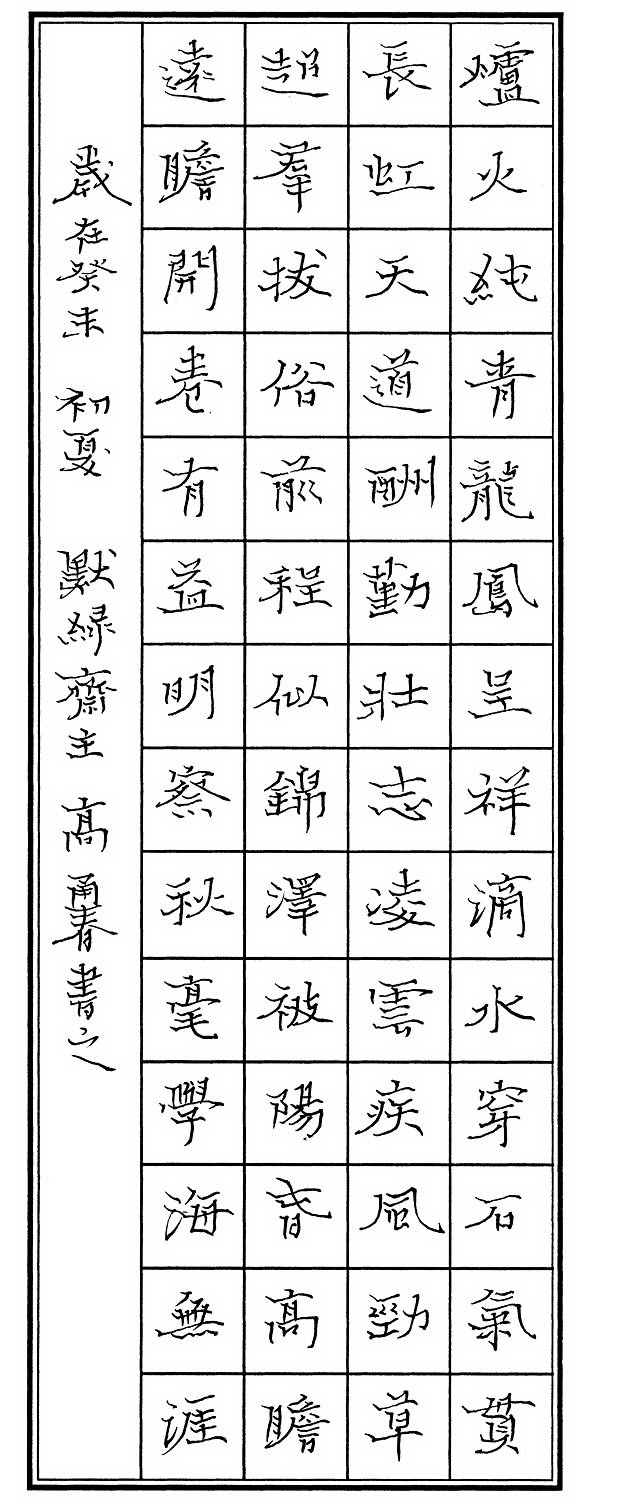 爐火純青龍鳳呈祥滴水穿石氣貫
長虹天道酬勤壯志凌雲疾風勁草
超羣拔俗前程似錦澤被陽春高瞻
遠瞻開卷有益明察秋毫學海無涯
歲在癸未 初夏 默緣齋主 高甬春書之